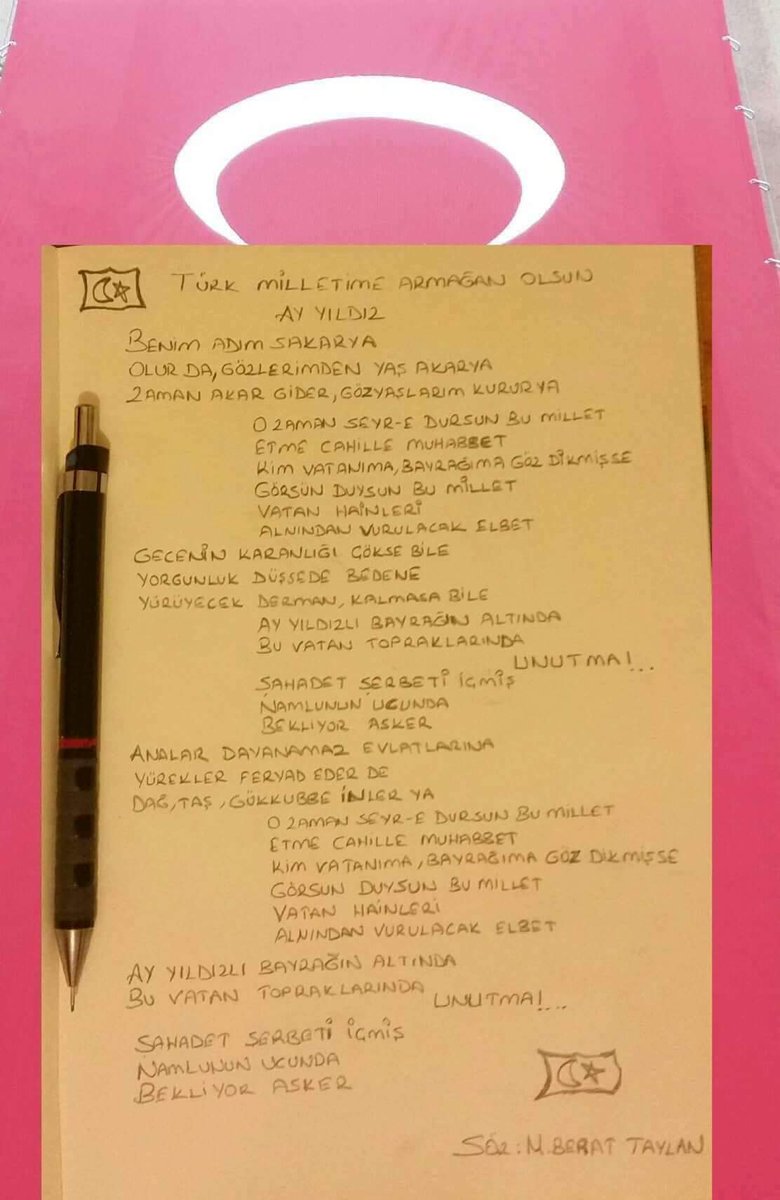 TÜRK MİLLETİME ARMAĞAN OLSUN
AY YILDIZ
BENIM ADIM SAKARYA
OLUR DA, GÖZLERİMDEN YAŞ AKARYA
ZAMAN AKAR GİDER, GÖZYAŞLARIM KURURYA
O ZAMAN SEYR-E DURSUN BU MİLLET
ETME CAHİLLE MUHABBET
KİM VATANIMA, BAYRAĞIMA GÖZ DİKMİŞSE
GÖRSÜN DUYSUN BU MİLLET
VATAN HAİNLERİ
ALNINDAN VURULACAK ELBET
GECENİN KARANLIĞI GÖKSE BİLE
YORGUNLUK DÜŞSEDE BEDENE
YÜRÜYECEK DERMAN, KALMASA BİLE
AY YILDIZLI BAYRAĞIN ALTINDA
BU VATAN TOPRAKLARINDA
UNUTMA!...
ŞAHADET ŞERBETİ İÇMİŞ
NAMLUNUN UCUNDA
BEKLİYOR ASKER
ANALAR DAYANAMAZ EVLATLARINA
YÜREKLER FERYAD EDER DE
DAĞ, TAŞ, GÖKKUBBE İNLER YA
O ZAMAN SEYR-E DURSUN BU MİLLET
ETME CAHİLLE MUHABBET
KİM VATANIMA, BAYRAĞIMA GÖZ DİKMİŞSE
GÖRSÜN DUYSUN BU MILLET
VATAN HAİNLERİ
ALNINDAN VURULACAK ELBET
AY YILDIZLI BAYRAĞIN ALTINDA
BU VATAN TOPRAKLARINDA UNUTMA!...
ŞAHADET ŞERBETİ İÇMİŞ
NAMLUNUN UCUNDA
BEKLİYOR ASKER
SÖZ: M. BERAT TAYLAN